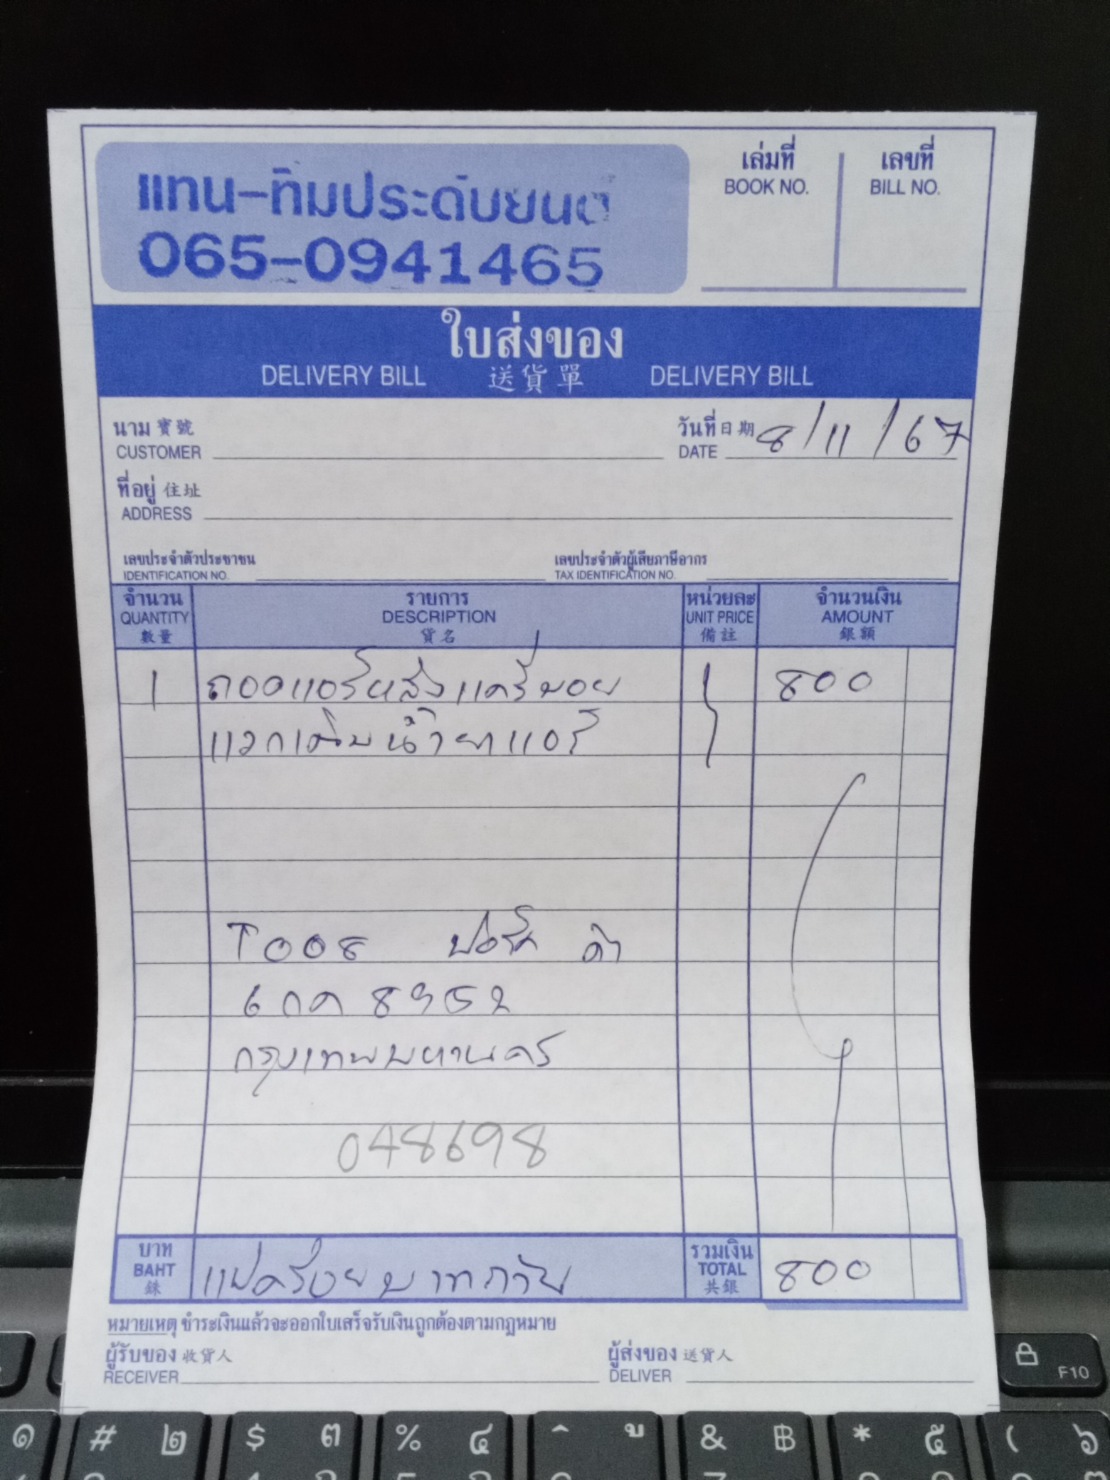 แทน-ทิมประดับยนต์
065-0941465
เล่มที่
BOOK NO.
เลขที่
BILL NO.
ใบส่งของ
DELIVERY BILL 送貨單 DELIVERY BILL
นาม 寶號
CUSTOMER
วันที่ 日期 8/11/67
DATE
ที่อยู่ 住址
ADDRESS
เลขประจำตัวประชาชน
IDENTIFICATION NO.
เลขประจำตัวผู้เสียภาษีอากร
TAX IDENTIFICATION NO.
จำนวน รายการ หน่วยละ จำนวนเงิน
QUANTITY DESCRIPTION UNIT PRICE AMOUNT
數量 貨名 備註 銀額
1 ถอดแอร์หลัง 800
น้ำยาแอร์
T008 ดำ
6กค 8952
กรุงเทพมหานคร
048698
บาท
BAHT
銖
แปดร้อยบาทถ้วน
รวมเงิน
TOTAL
共銀
800
หมายเหตุ ชำระเงินแล้วจะออกใบเสร็จรับเงินถูกต้องตามกฎหมาย
ผู้รับของ 收貨人
RECEIVER
ผู้ส่งของ 送貨人
DELIVER
F10
๑ # ๒ $ ๓ % ๔ ู & ฿ * ๕ ( ๖